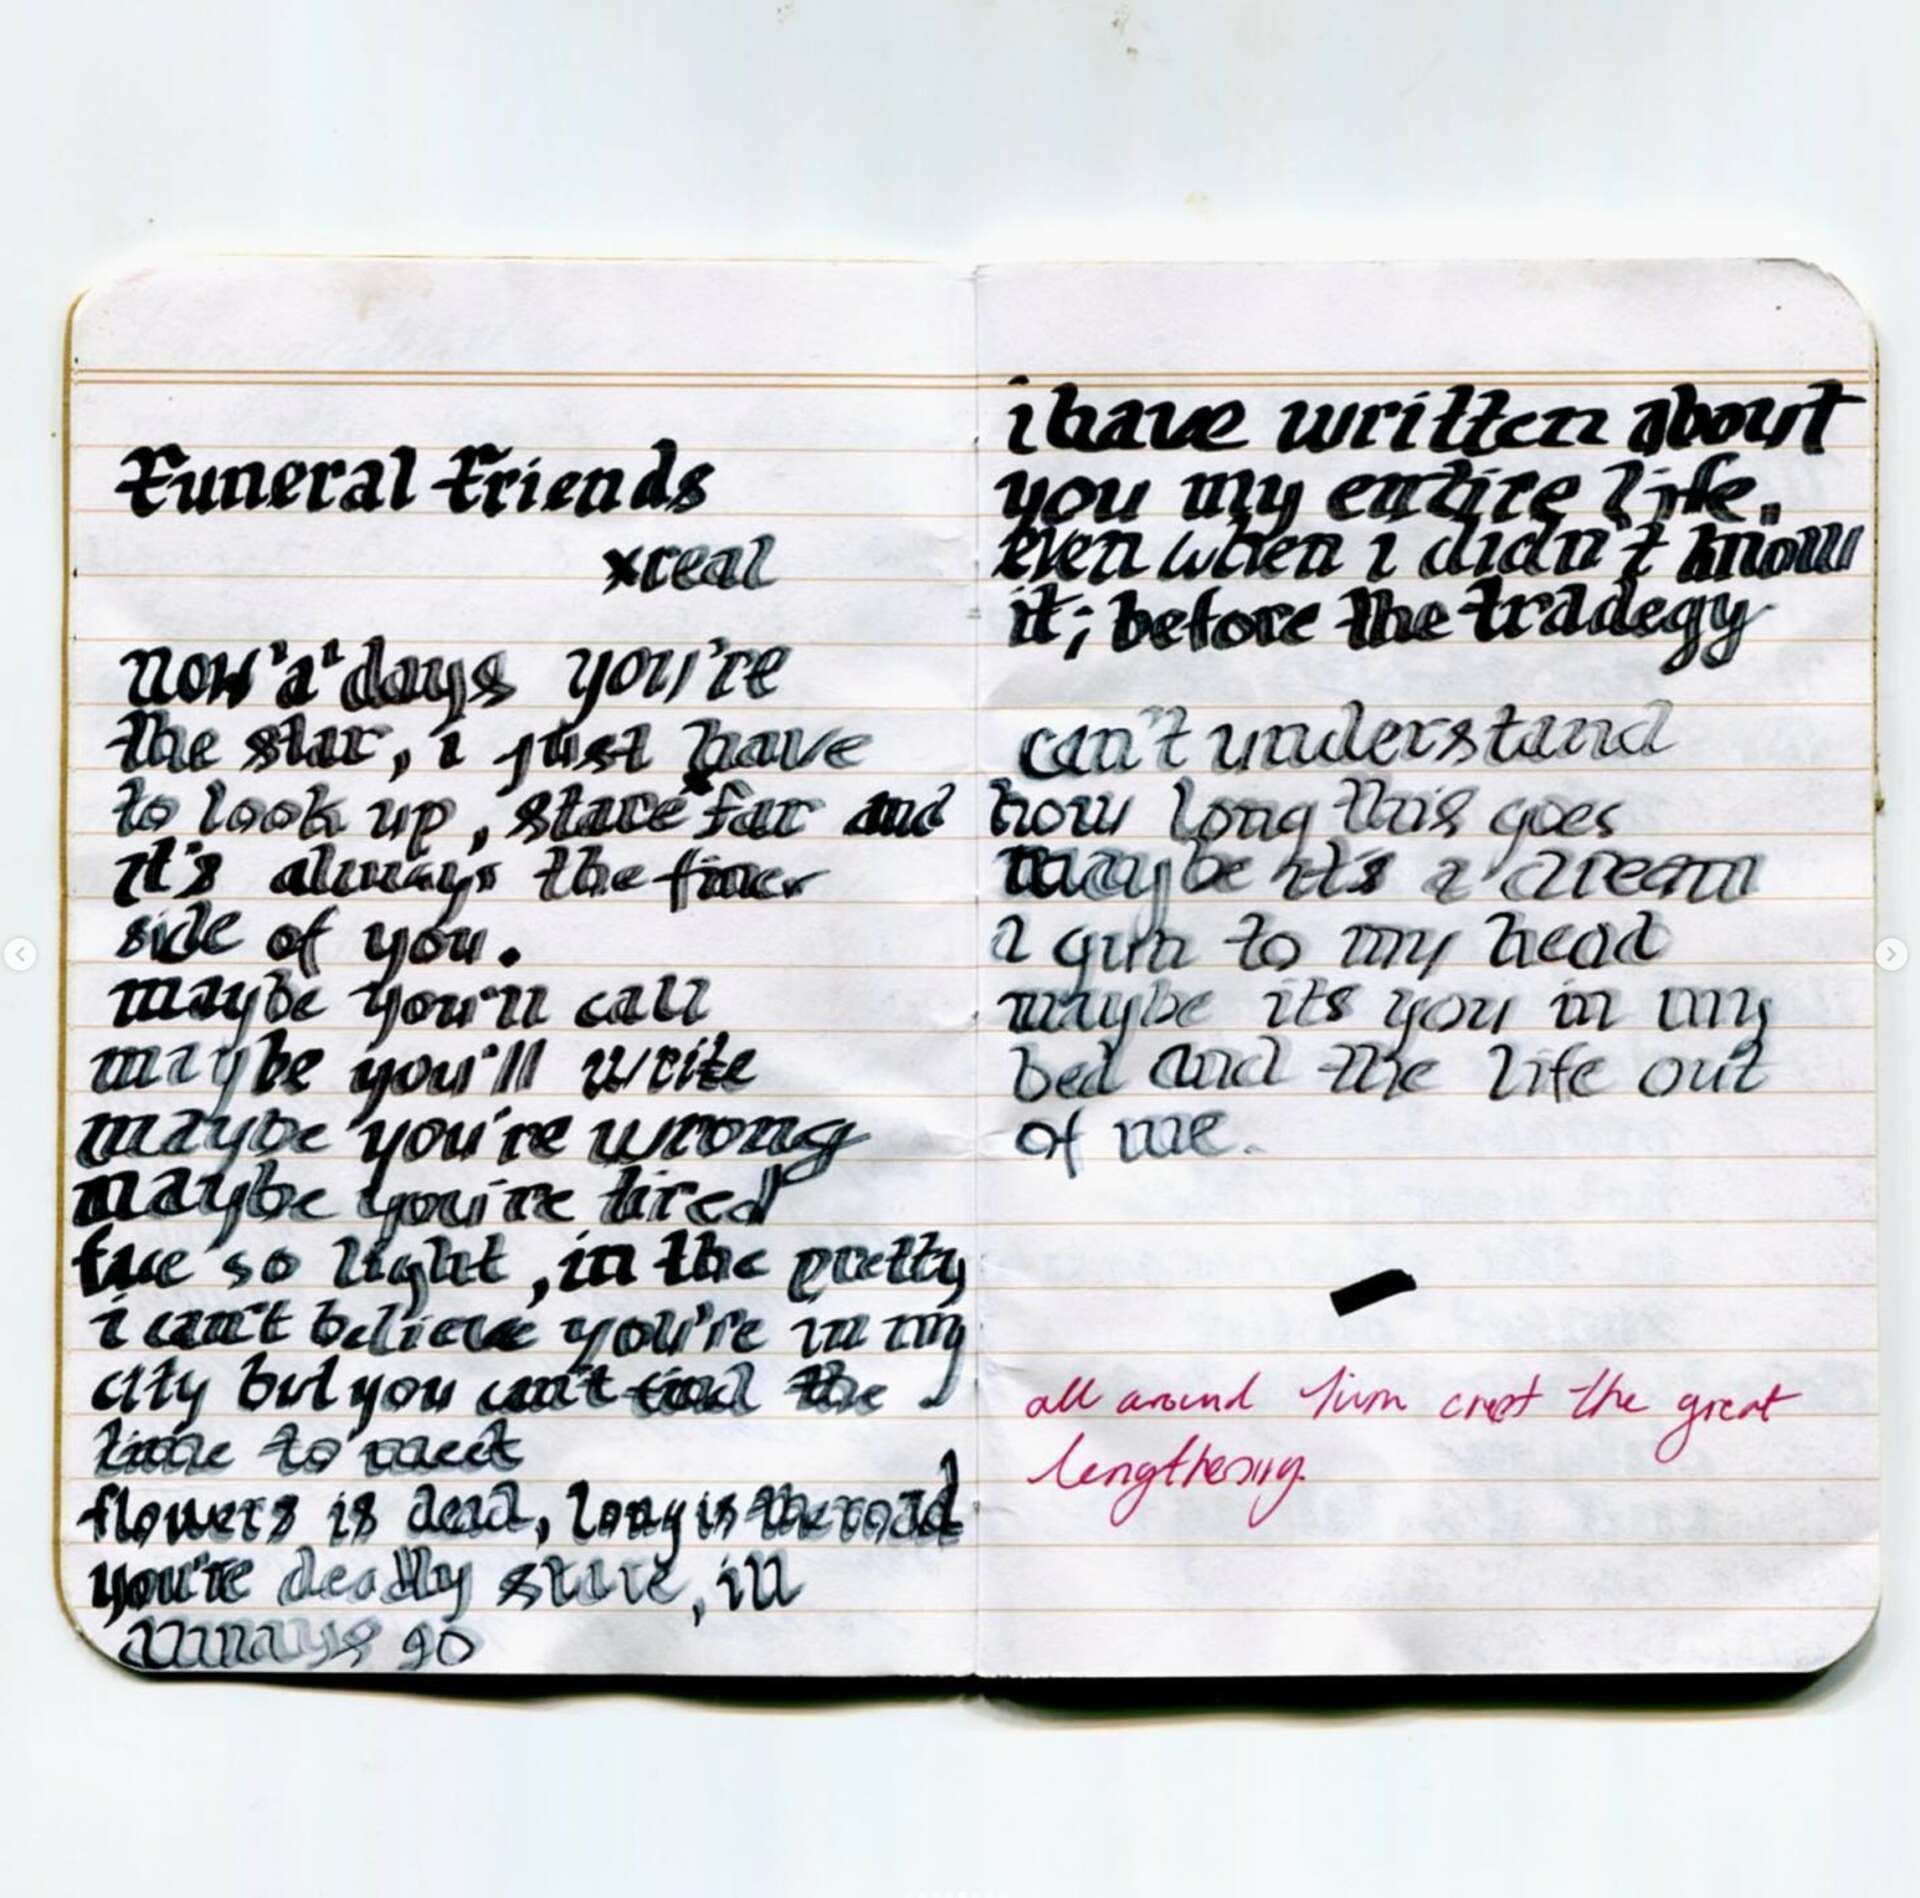 Funeral Friends
xreal
now'a'days you're
the star, i just have
to look up, stare far and
it's always the finer
side of you.
maybe you'll call
maybe you'll write
maybe you're wrong
maybe you're tired
face so light, in the pretty
i can't believe you're in my
city but you can't find the
time to meet
flowers is dead, long is the road
you're deadly stare, ill
always go
i have written about
you my entire life.
even when i didn't know
it; before the tradegy
can't understand
how long this goes
maybe it's a dream
a gun to my head
maybe its you in my
bed and the life out
of me.
all around him the great
lengthening.